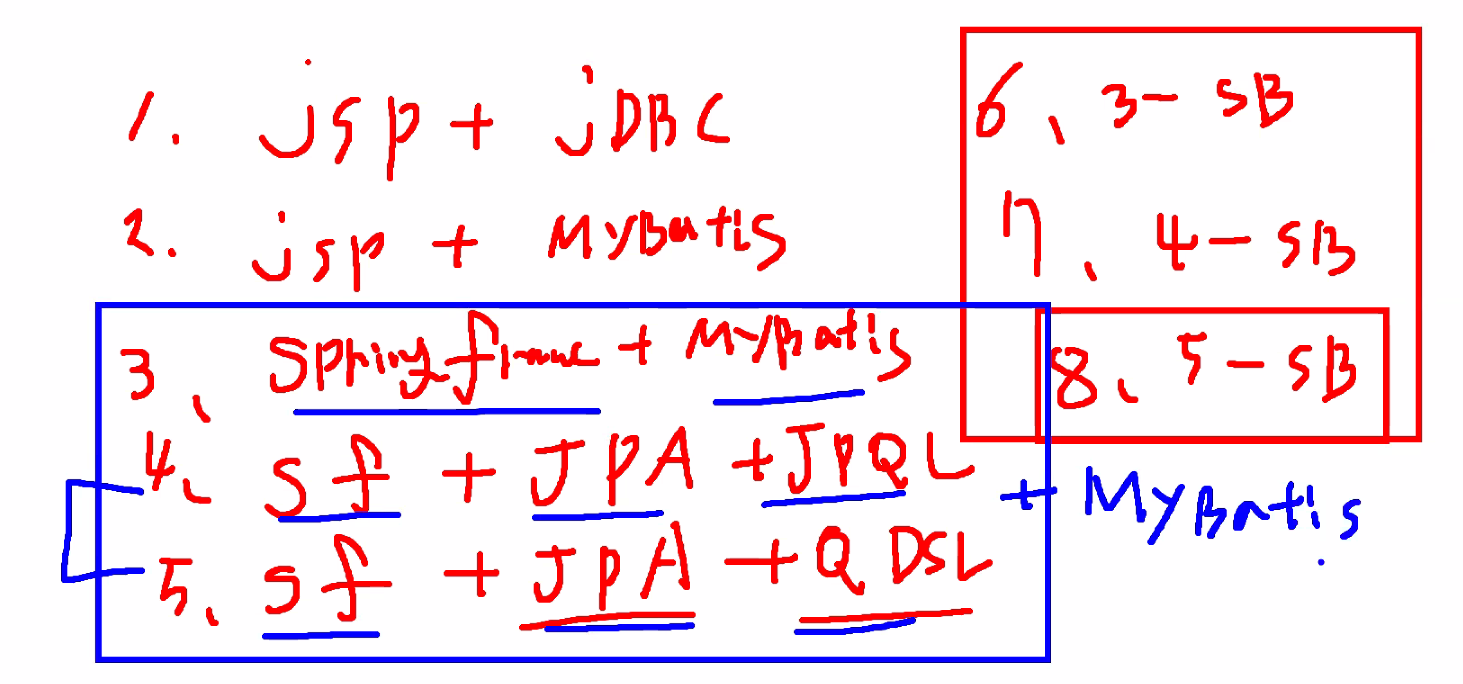 1. jsp + jDBC
2. jsp + MyBatis
3、 Spring frame + MyBatis
4、 sf + JPA + JPQL + MyBatis
5、 sf + JPA + Q DSL
6、 3 - SB
7、 4 - SB
8、 5 - SB